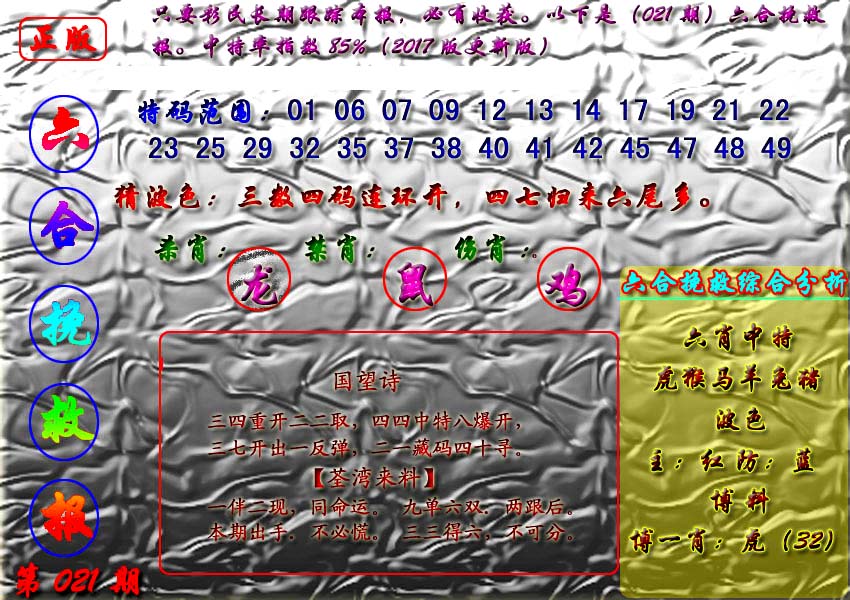 正版
只要彩民长期跟踪本报，必有收获。以下是（021期）六合挽救
报。中特率指数85%（2017版更新版）
六合挽救报
第021期
特码范围：01 06 07 09 12 13 14 17 19 21 22
23 25 29 32 35 37 38 40 41 42 45 47 48 49
猜波色：三数四码连环开，四七归来六尾多。
杀肖：龙 禁肖：鼠 伤肖：鸡
国望诗
三四重开二二取，四四中特八爆开，
三七开出一反弹，二一藏码四十寻。
【荃湾来料】
一伴二现，同命运。 九单六双．两跟后。
本期出手．不必慌。 三三得六，不可分。
六合挽救综合分析
六肖中特
虎猴马羊兔猪
波色
主：红防：蓝
博料
博一肖：虎（32）